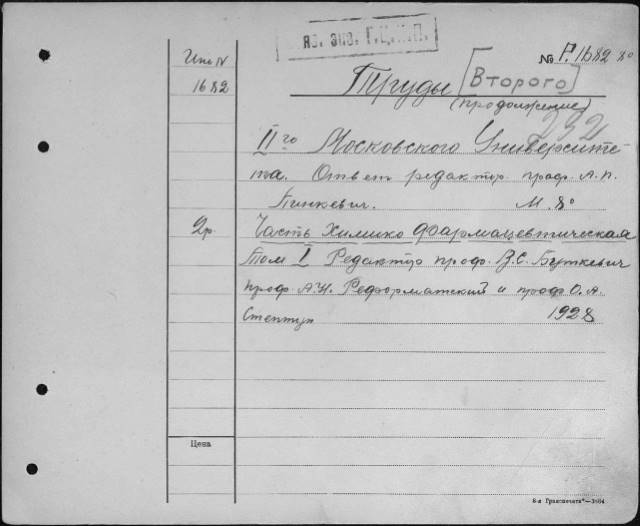 яз. эко. Г.Ц.К.П.
Инв N
1682
№ Р.1682 80
Труды [Второго]
(продолжение)
IIго Московского Университе-
та. Ответ редактор. проф. А.П.
Пинкевич. М. 80
2р Часть Химико Фармацевтическая
Том I Редактор проф. В.С. Буткевич
проф. А.Н. Реформатский и проф О.А.
Степпун 1928
Цена